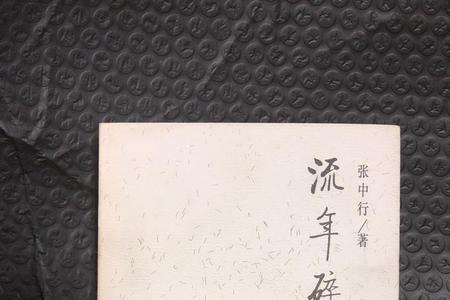 张中行/著
流年碎